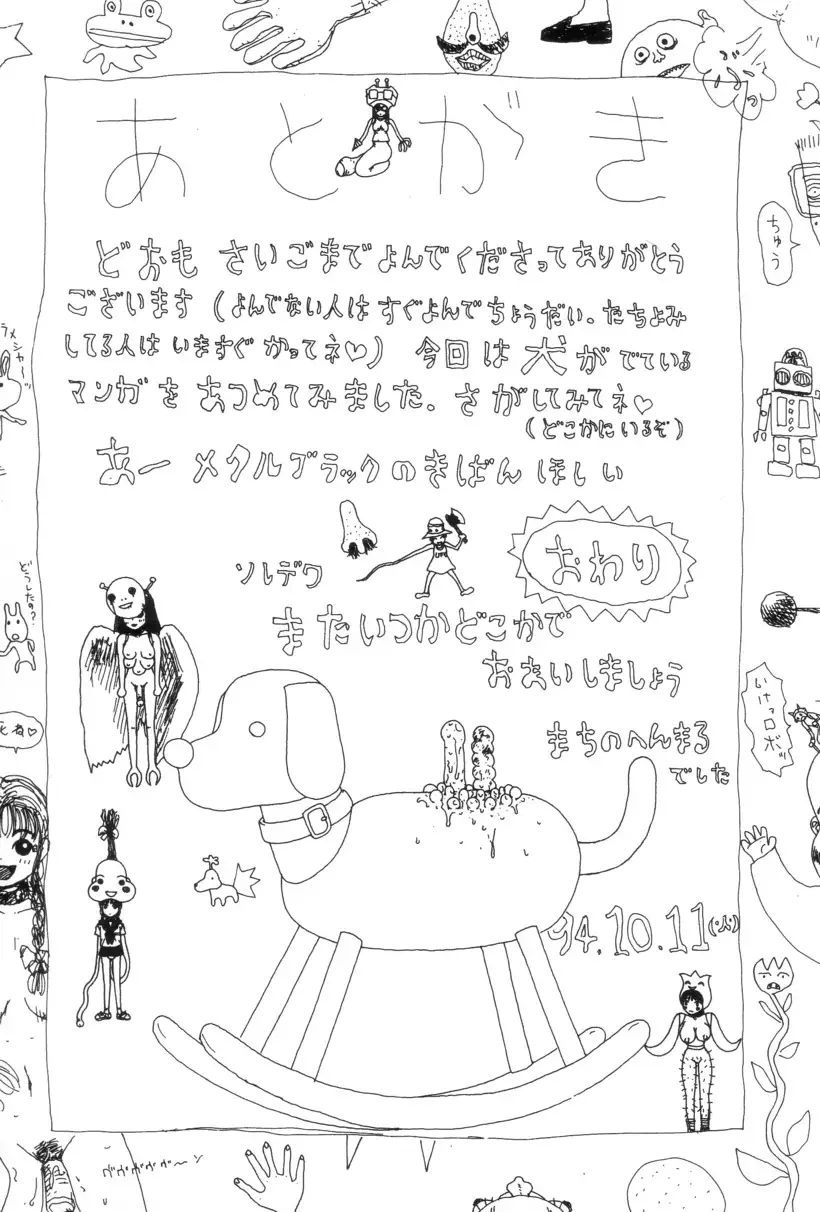 あとがき
どおも さいごまでよんでくださってありがとう
ございます(よんでない人は すぐよんでちょうだい、たちよみ
してる人は いますぐ かってネ♡) 今回は犬がでている
マンガを あつめてみました。さがしてみてネ♡
(どこかにいるぞ)
あー メタルブラックのきばん ほしい
おわり
ソレデワ
またいつかどこかで
おあいしましょう
まちのへんまる
でした
94.10.11(火)
ちゅう
どうしたの?
いけっロボッ
死ね♡
ヴヴヴヴヴ〜ン